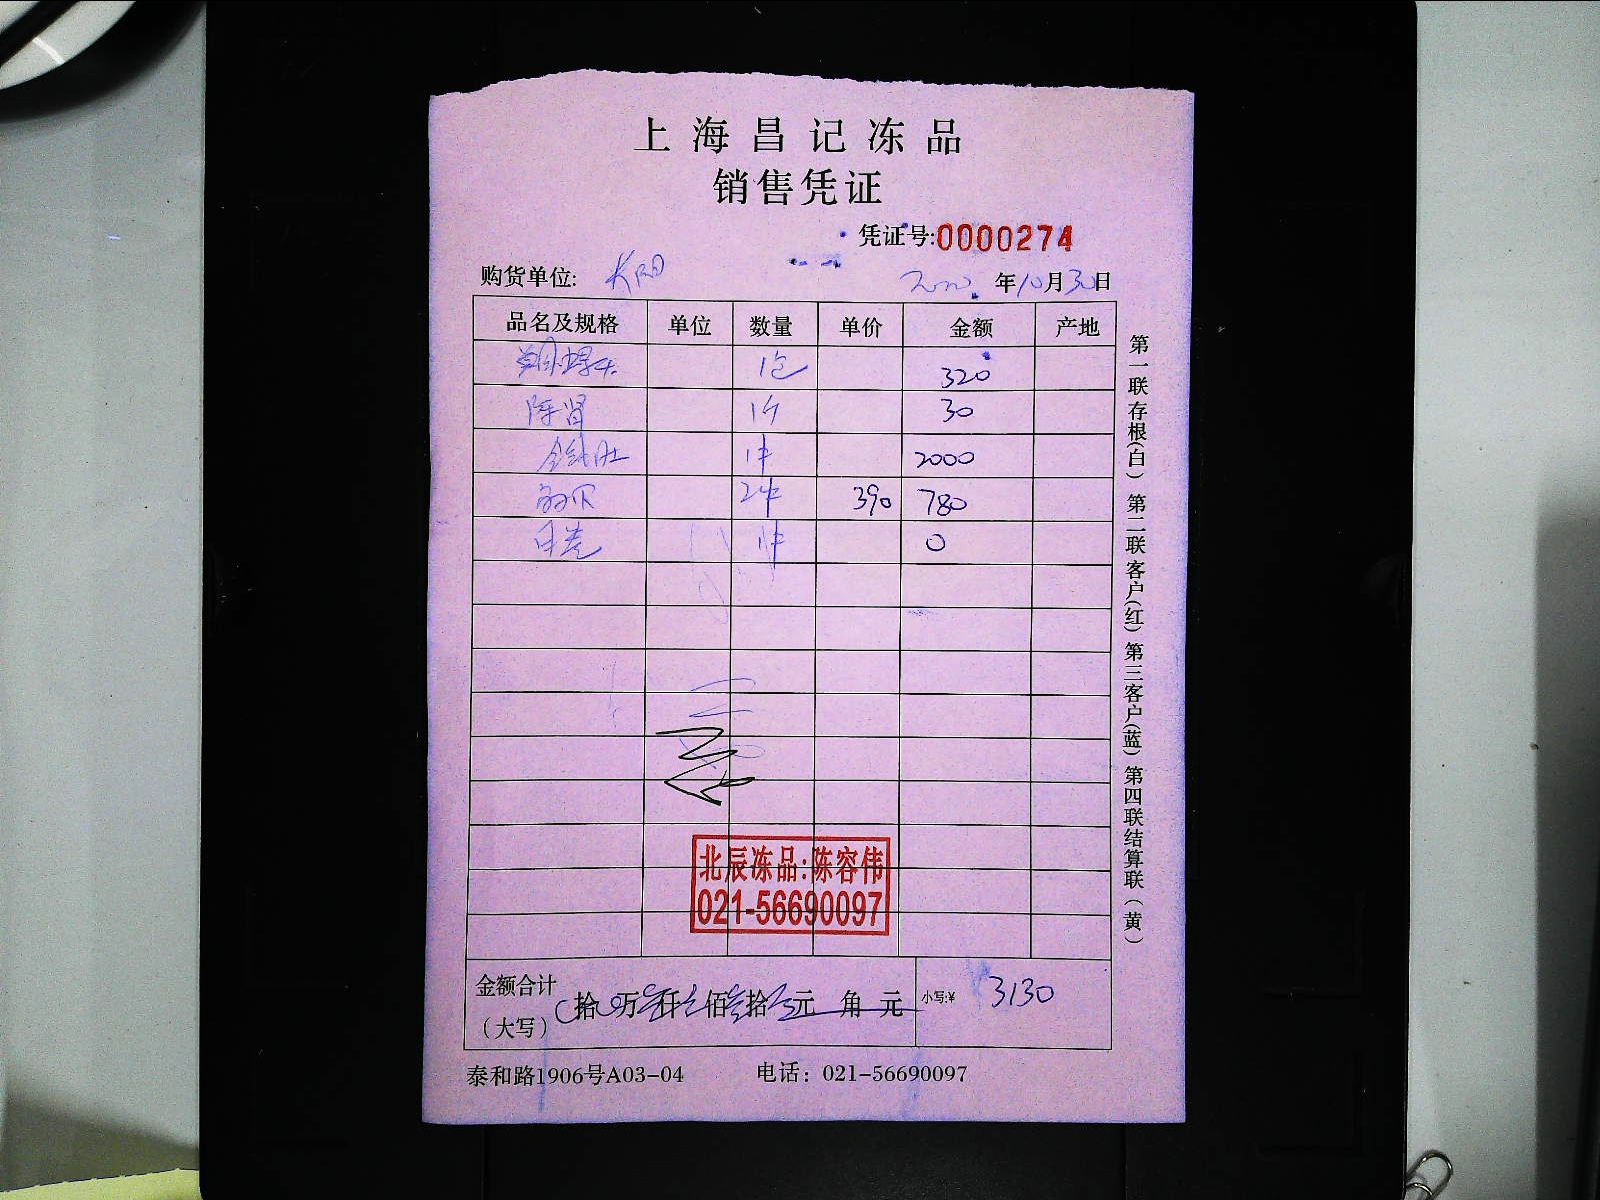 上海昌记冻品
销售凭证
凭证号:0000274
购货单位: 年10月30日
品名及规格 单位 数量 单价 金额 产地
1包 320
1个 30
1件 2000
2件 390 780
1件 0
北辰冻品:陈容伟
021-56690097
金额合计(大写) 拾 万 仟 佰 拾 元 角 元 小写:¥ 3130
泰和路1906号A03-04 电话: 021-56690097
第一联存根(白) 第二联客户(红) 第三客户(蓝) 第四联结算联(黄)